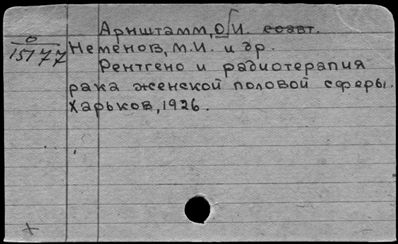 Арнштамм, О.И. соавт.
Неменов, М.И. и др.
О
15177
Рентгено и радиотерапия
рака женской половой сферы.
Харьков, 1926.
+